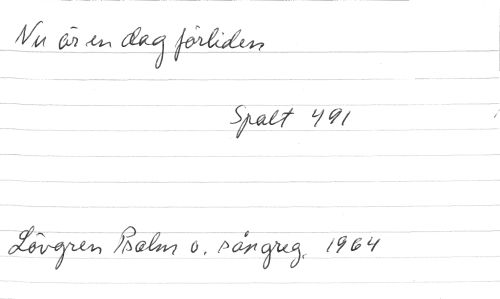 Nu är en dag förliden
Spalt 491
Lövgren Psalm o. sångreg. 1964